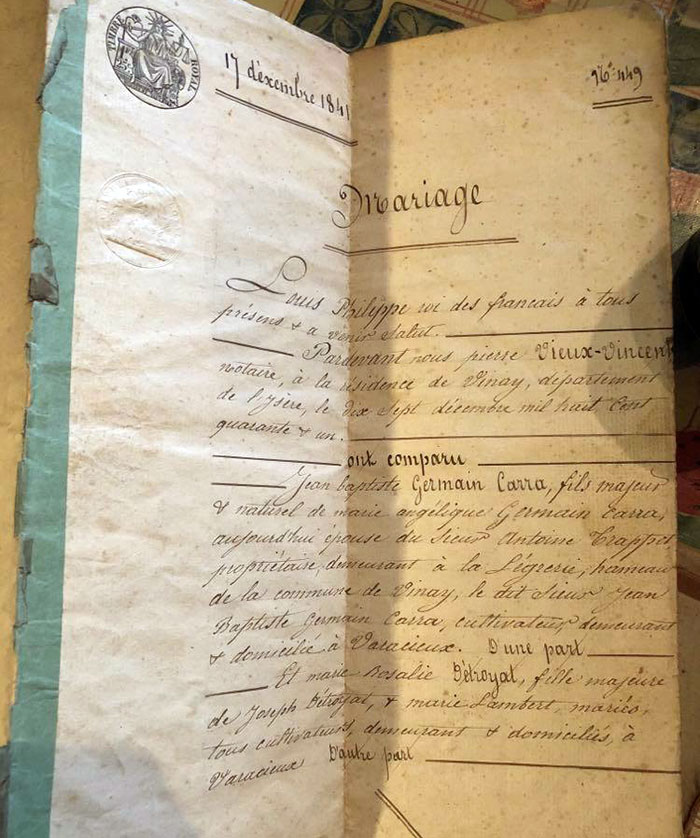 TIMBRE ROYAL
17 décembre 1841
N°. 449
Mariage
Louis Philippe roi des français à tous
présens & a venir Salut.
Pardevant nous pierre Vieux-Vincent
notaire, à la résidence de Vinay, département
de l'Isère, le dix Sept décembre mil huit Cent
quarante & un.
ont comparu
Jean baptiste Germain Carra, fils majeur
& naturel de marie angélique Germain Carra,
aujourd'hui épouse du Sieur Antoine
propriétaire, demeurant à la Légrerie, hameau
de la commune de Vinay, le dit Sieur Jean
Baptiste Germain Carra, cultivateur demeurant
& domicilié à Varacieux. D'une part
Et marie Rosalie Détroyat, fille majeure
de Joseph Détroyat, & marie Lambert, mariés,
tous cultivateurs, demeurant & domiciliés, à
Varacieux D'autre part